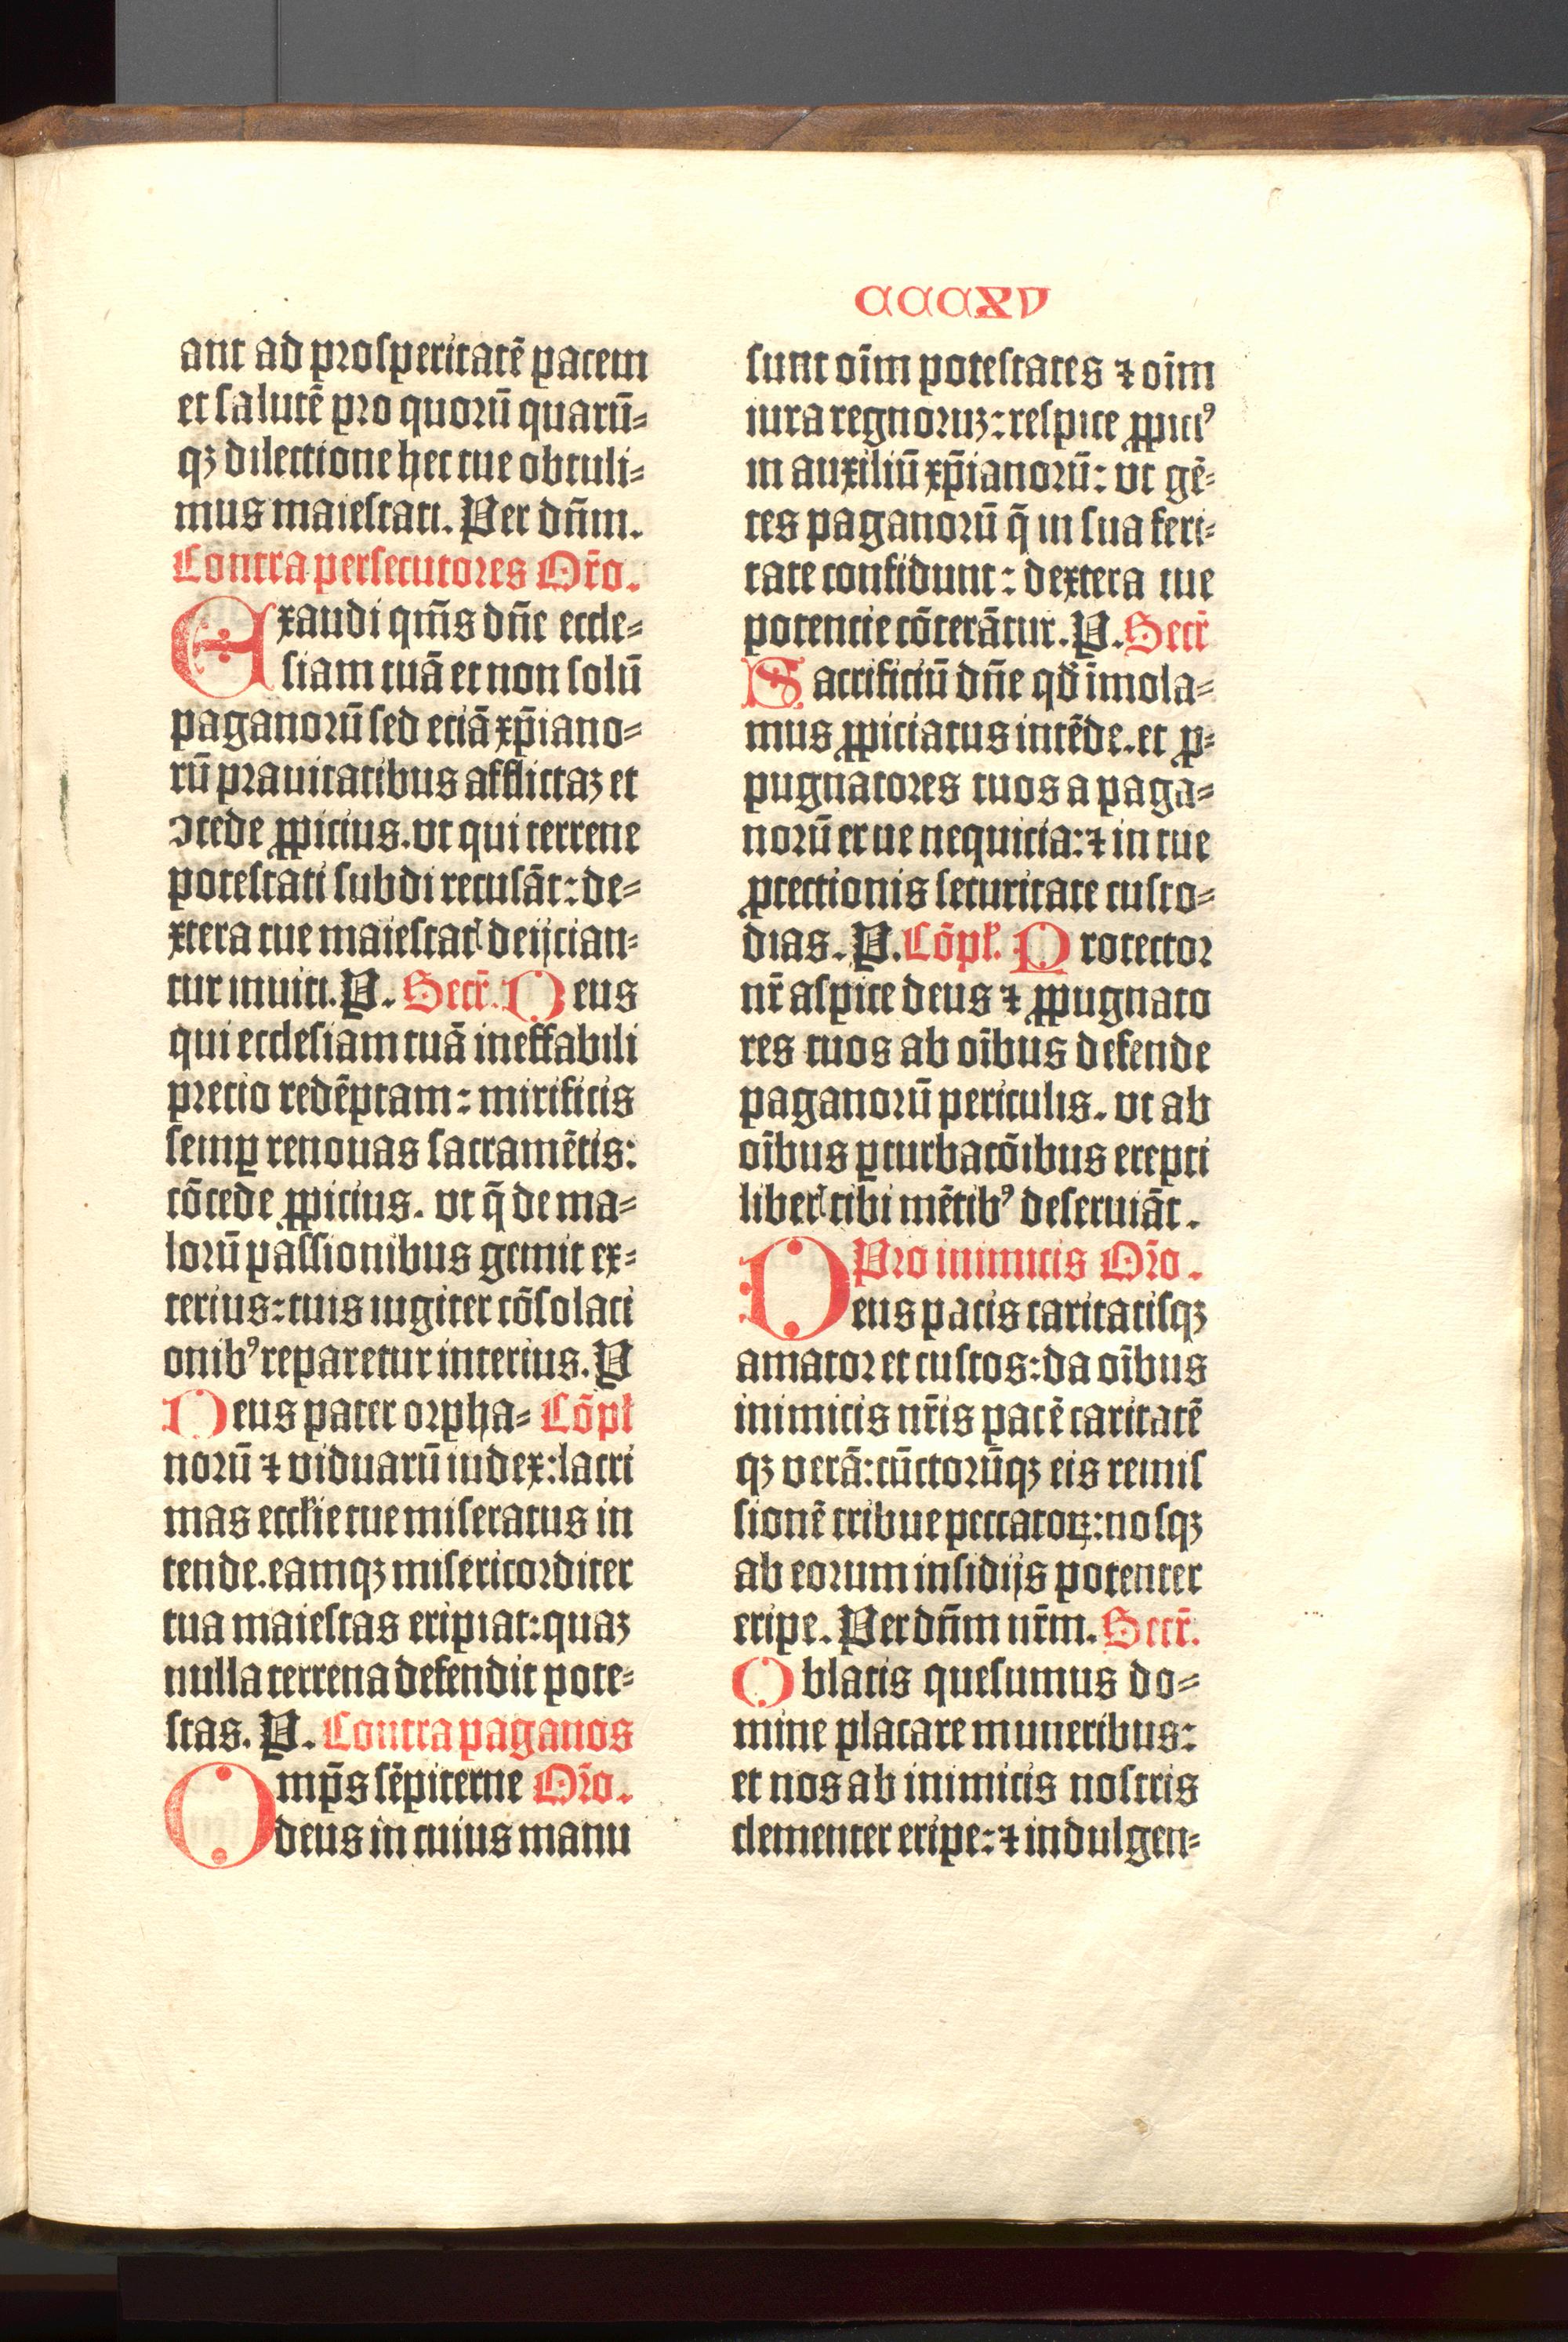 CCCXV
ant ad prosperitatē pacem
et salutē pro quorū quarū⸗
qꝫ dilectione hec tue obtuli⸗
mus maiestati. Per dn̄m.
Contra persecutores Or̄o.
Exaudi qm̄s dn̄e eccle⸗
siam tuā et non solū
paganorū sed eciā xp̄iano⸗
rū prauitatibus afflictaꝫ et
ꝯcede ꝓpicius. vt qui terrene
potestati subdi recusāt: de⸗
xtera tue maiestatꝭ deijcian⸗
tur inuiti. P. Secr̄. Deus
qui ecclesiam tuā ineffabili
precio redēptam: mirificis
semꝑ renouas sacramētis:
cōcede ꝓpicius. vt q̄ de ma⸗
lorū passionibus gemit ex⸗
terius: tuis iugiter cōsolaci
onibꝰ reparetur interius. P
Deus pater orpha⸗ Cōpl
norū ⁊ viduarū iudex: lacri
mas eccl̄ie tue miseratus in
tende. eamqꝫ misericorditer
tua maiestas eripiat: quaꝫ
nulla terrena defendit pote⸗
stas. P. Contra paganos
Omp̄s sēpiterne Or̄o.
deus in cuius manu
sunt oīm potestates ⁊ oīm
iura regnoruꝫ: respice ꝓpiciꝰ
in auxiliū xp̄ianorū: vt gē⸗
tes paganorū q̄ in sua feri⸗
tate confidunt: dextera tue
potencie cōterātur. P. Secr̄
Sacrificiū dn̄e qd̄ īmola⸗
mus ꝓpiciatus intēde. et ꝓ⸗
pugnatores tuos a paga⸗
norū erue nequicia: ⁊ in tue
ꝓtectionis securitate custo⸗
dias. P. Cōpl. Protector
nr̄ aspice deus ⁊ ꝓpugnato
res tuos ab oībus defende
paganorū periculis. vt ab
oībus ꝑturbacōibus erepti
liberꝭ tibi mētibꝰ deseruiāt.
Pro inimicis Or̄o.
Deus pacis caritatisqꝫ
amator et custos: da oībus
inimicis nr̄is pacē caritatē
qꝫ verā: cūctorūqꝫ eis remis
sionē tribue peccatoꝝ: nosqꝫ
ab eorum insidijs potenter
eripe. Per dn̄m nr̄m. Secr̄.
Oblatis quesumus do⸗
mine placare muneribus:
et nos ab inimicis nostris
clementer eripe: ⁊ indulgen⸗